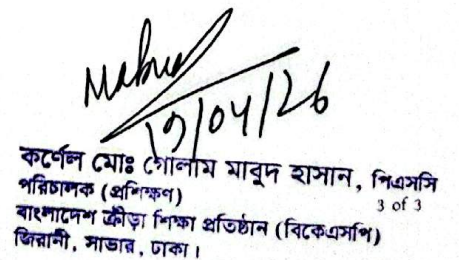 Mabud
19/04/26
কর্ণেল মোঃ গোলাম মাবুদ হাসান, পিএসসি
পরিচালক (প্রশিক্ষণ)
3 of 3
বাংলাদেশ ক্রীড়া শিক্ষা প্রতিষ্ঠান (বিকেএসপি)
জিরানী, সাভার, ঢাকা।